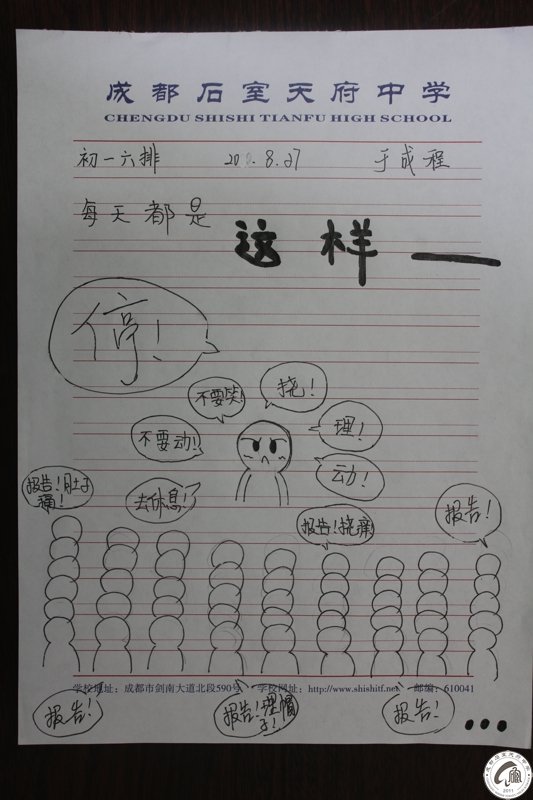 成都石室天府中学
CHENGDU SHISHI TIANFU HIGH SCHOOL
初一六排 8.27 于成程
每天都是 这样—
停!
不要笑! 挠!
不要动! 理!
去休息! 动!
报告!肚子
痛!
报告!挠痛
报告!
学校地址:成都市剑南大道北段590号 学校网址:http://www.shishitf.net 邮编:610041
报告!
报告!理帽
子!
报告!
•••
2011